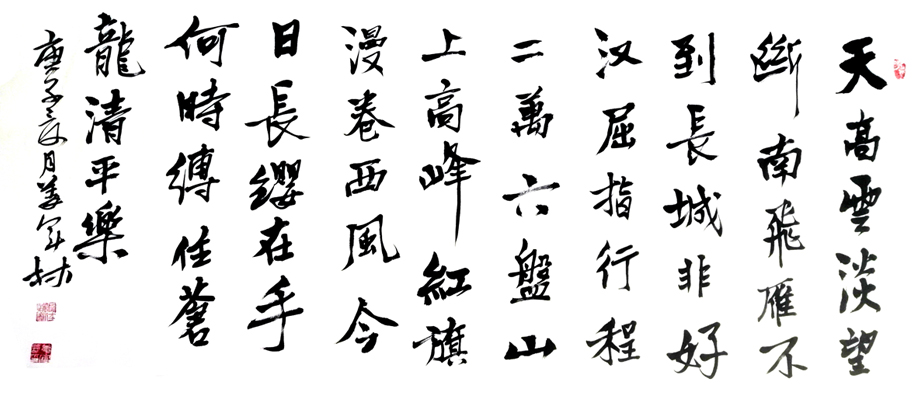 天高雲淡望
斷南飛雁不
到長城非好
汉屈指行程
二萬六盤山
上高峰紅旗
漫卷西風今
日長纓在手
何時縛住蒼
龍清平樂
庚子夏月姜军